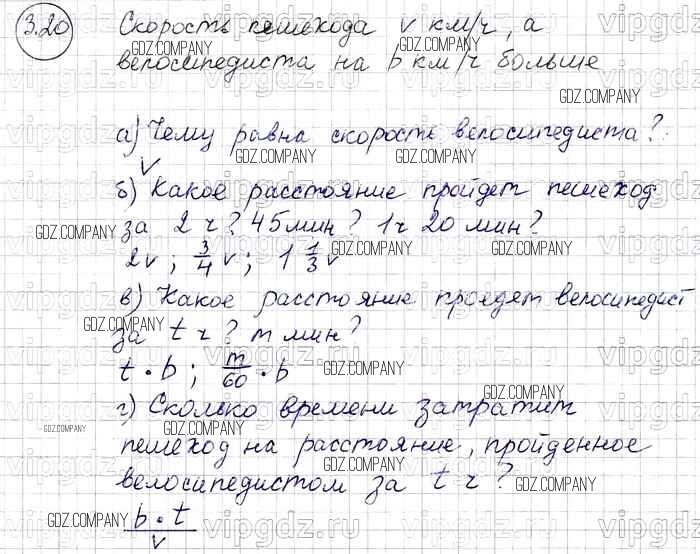 3.20 Скорость пешехода v км/ч, а
GDZ.COMPANY
велосипедиста на b км/ч больше
GDZ.COMPANY
а) Чему равна скорость велосипедиста?
GDZ.COMPANY GDZ.COMPANY
v
б) Какое расстояние пройдет пешеход
за 2 ч? 45 мин? 1ч 20 мин?
GDZ.COMPANY GDZ.COMPANY GDZ.COMPANY
2v; 3/4 v; 1 1/3 v
в) Какое расстояние проедет велосипедист
GDZ.COMPANY
за t ч? m мин?
t · b; m/60 · b
GDZ.COMPANY
GDZ.COMPANY
г) Сколько времени затратит
GDZ.COMPANY GDZ.COMPANY
пешеход на расстояние, пройденное
велосипедистом за t ч?
GDZ.COMPANY GDZ.COMPANY
GDZ.COMPANY b · t / v
vipgdz.ru